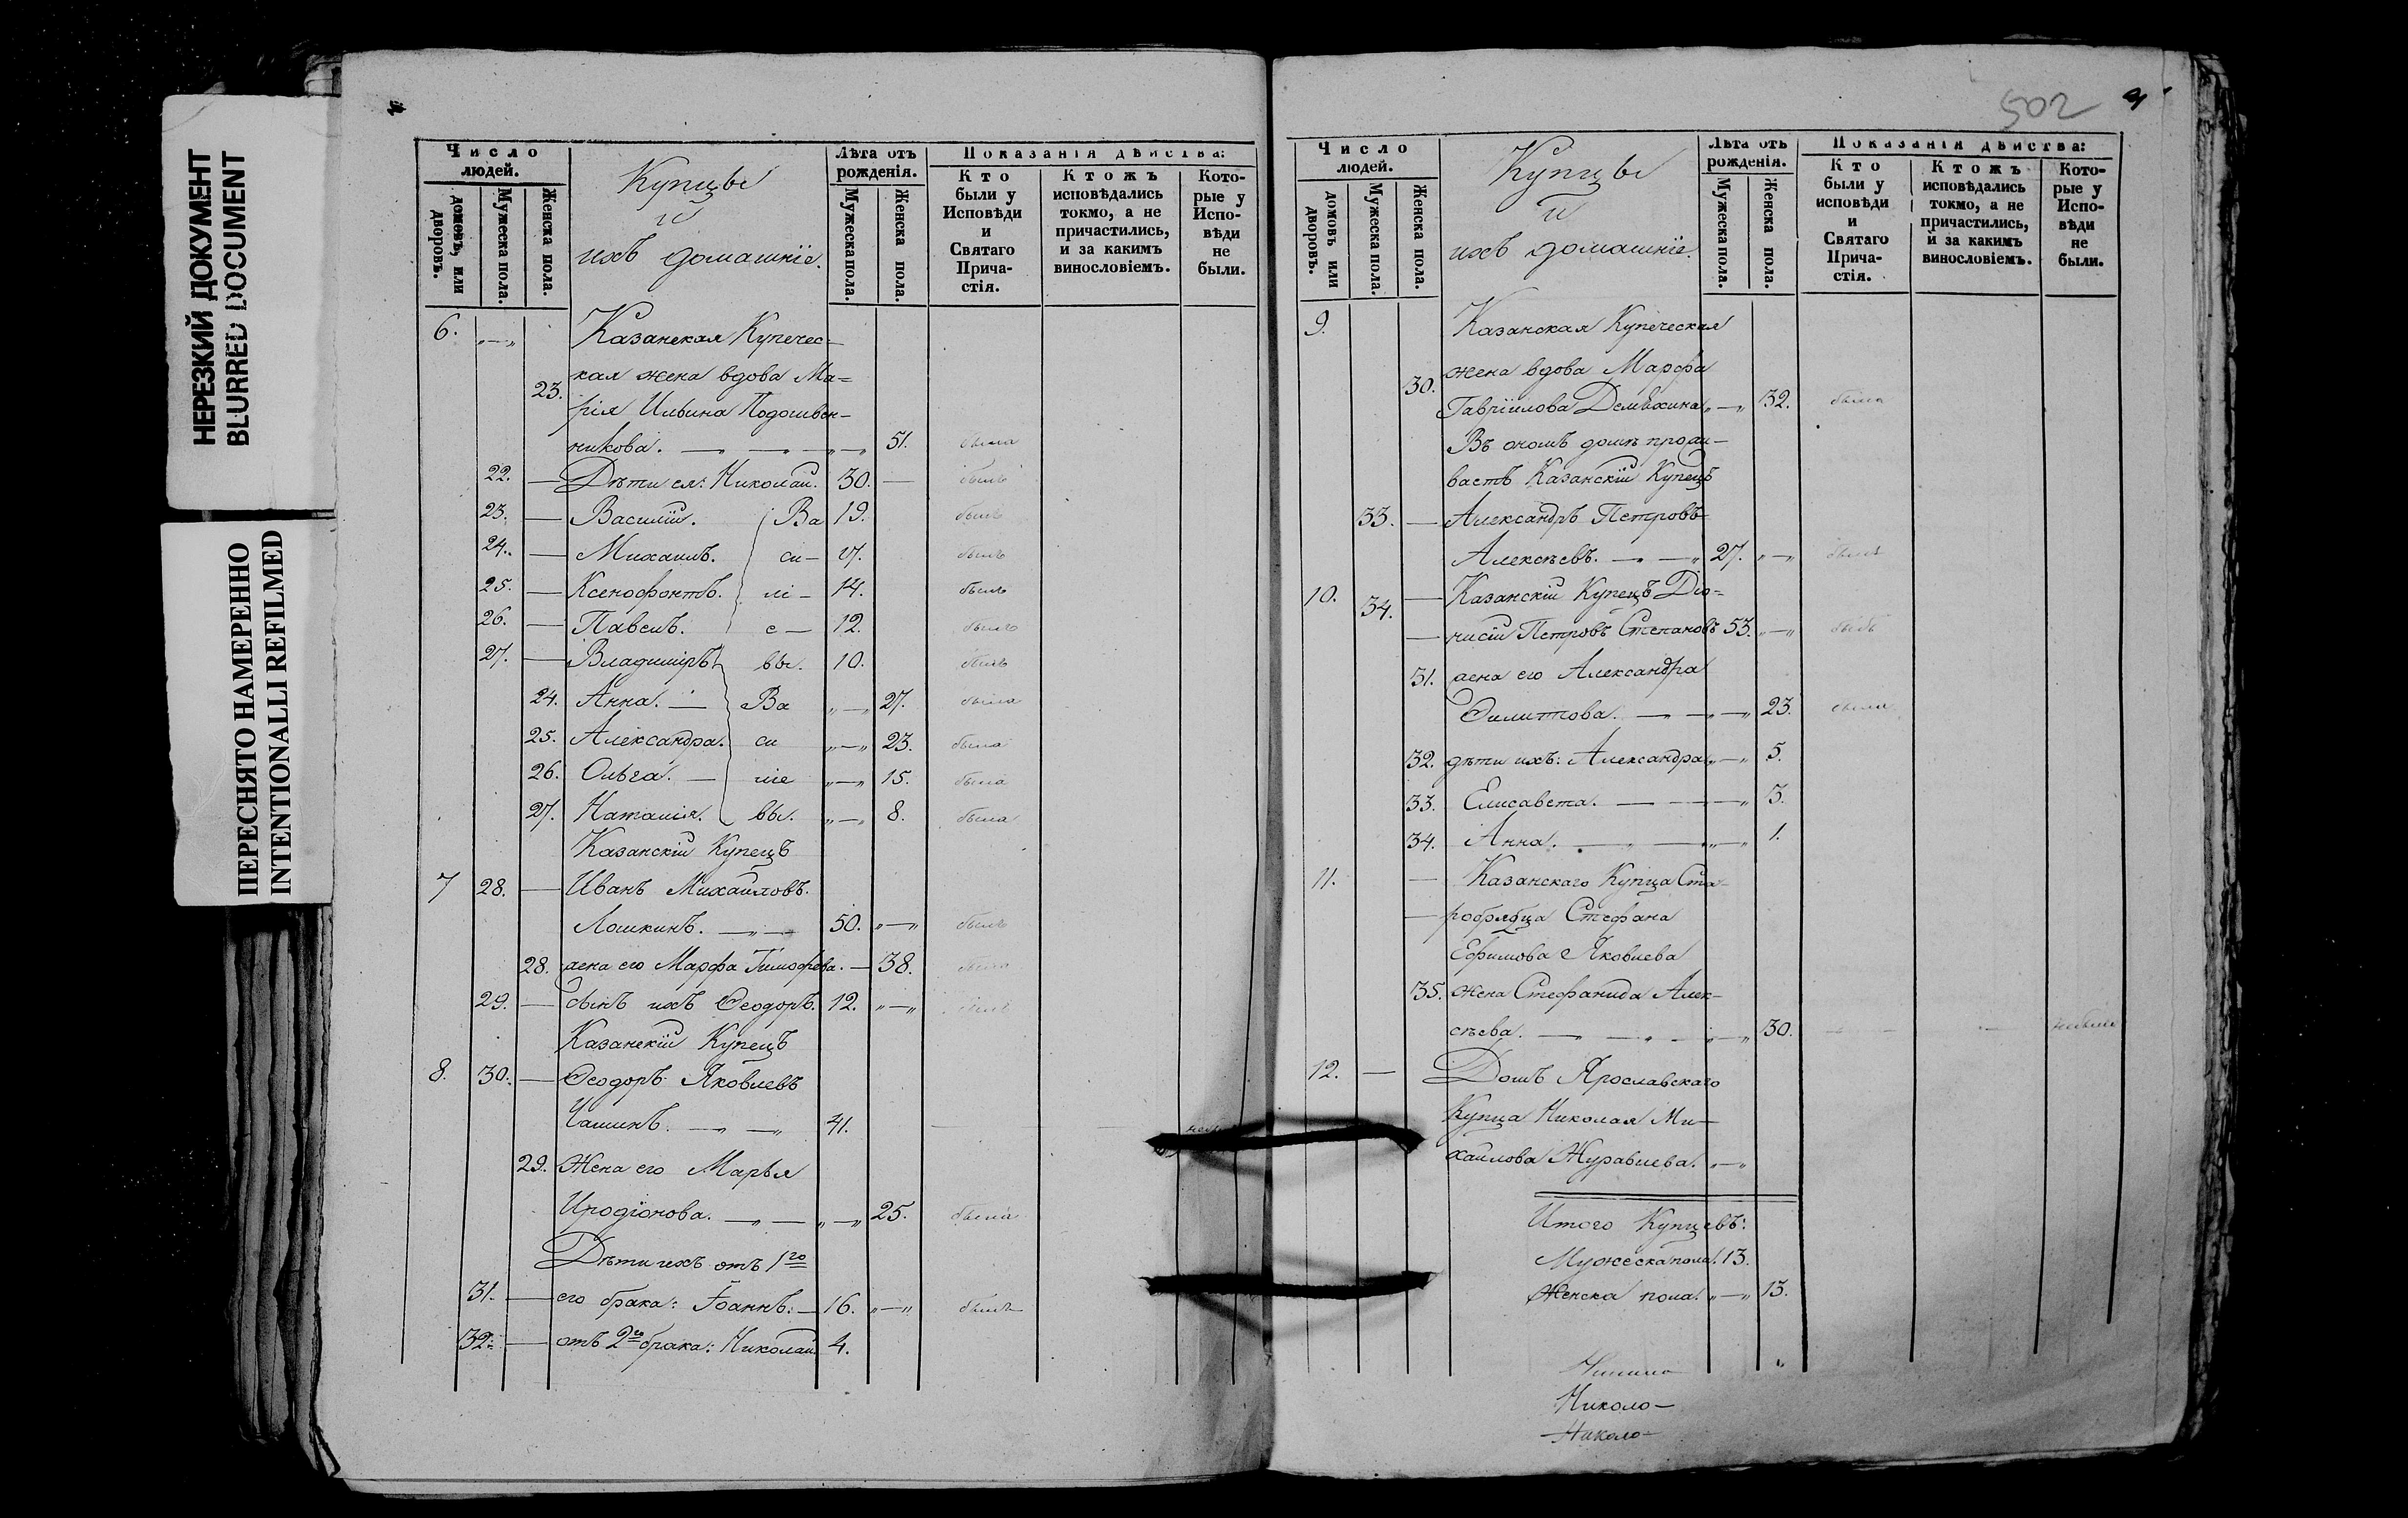 НЕРЕЗКИЙ ДОКУМЕНТ
BLURRED DOCUMENT
ПЕРЕСНЯТО НАМЕРЕННО
INTENTIONALLI REFILMED
Число людей.
домовъ, или дворовъ.
Мужеска пола.
Женска пола.
Купцы
и
ихъ домашніе.
Лѣта отъ рожденія.
Мужеска пола.
Женска пола.
Показанія дѣйства:
Кто были у Исповѣди и Святаго Прича-стія.
Ктожъ исповѣдались токмо, а не причастились, и за какимъ винословіемъ.
Кото-рые у Испо-вѣди не были.
6. „—„ Казанская Купечес-
23. кая жена вдова Ма=
рія Ильина Подошвен-
никова. — „ — „ — „ — „ 51. была
22. — Дѣти ея: Николай. 30. — былъ
23. — Василій. Ва 19. былъ
24. — Михаилъ. си- 17. былъ
25. — Ксенофонтъ. лі- 14. былъ
26. — Павелъ. е- 12. былъ
27. — Владиміръ вы. 10. былъ
24. Анна. — Ва „—„ 27. была
25. Александра. си „—„ 23. была
26. Ольга. — лie „—„ 15. была
27. Наталія. вы. „—„ 8. была
Казанскій Купецъ
7 28. — Иванъ Михайловъ
Лошкинъ. — „ — 50. „—„ былъ
28. жена его Марфа Тимофѣева. — 38. была
29. — сынъ ихъ Ѳеодоръ. 12. „—„ былъ
Казанскій Купецъ
8. 30. — Ѳеодоръ Яковлевъ
Чашинъ. — „ — „ 41. —
29. Жена его Марья
Иродіонова. — „ — „ — „ 25. была
Дѣти ихъ отъ 1го
31. — его брака: Іоаннъ. — 16. „—„ былъ
32. — отъ 2го брака: Николай 4.
502
Число людей.
домовъ или дворовъ.
Мужеска пола.
Женска пола.
Купцы
и
ихъ домашніе.
Лѣта отъ рожденія.
Мужеска пола.
Женска пола.
Показанія дѣйства:
Кто были у исповѣди и Святаго Прича-стія.
Ктожъ исповѣдались токмо, а не причастились, и за какимъ винословіемъ.
Кото-рые у Испо-вѣди не были.
9. Казанская Купеческая
30. жена вдова Марфа
Гавріилова „—„ 32. была
Въ ономъ домѣ прожи-
ваетъ Казанскій Купецъ
33. — Александръ Петровъ
Алексѣевъ. — „ — „ 27. „—„ былъ
10. 34. — Казанскій Купецъ Діо=
— нисій Петровъ Степановъ 53. „—„ былъ
31. жена его Александра
Филиппова. — „ — „ — „ 23. была
32. дѣти ихъ: Александра „—„ 5.
33. Елисавета. — — — „ 3.
34. Анна. — „ — „ — „ 1.
11. — Казанскаго Купца Ста-
— робрядца Стефана
Ефимова Яковлева
35. жена Стефанида Алек-
сѣева. — „ — „ — „ — „ 30. — — небыла
12. — Домъ Ярославскаго
Купца Николая Ми-
хайлова Журавлева. „—„
Итого Купцевъ:
Мужеска пола. 13.
Женска пола. „—„ 13.
Николо-
Николо-